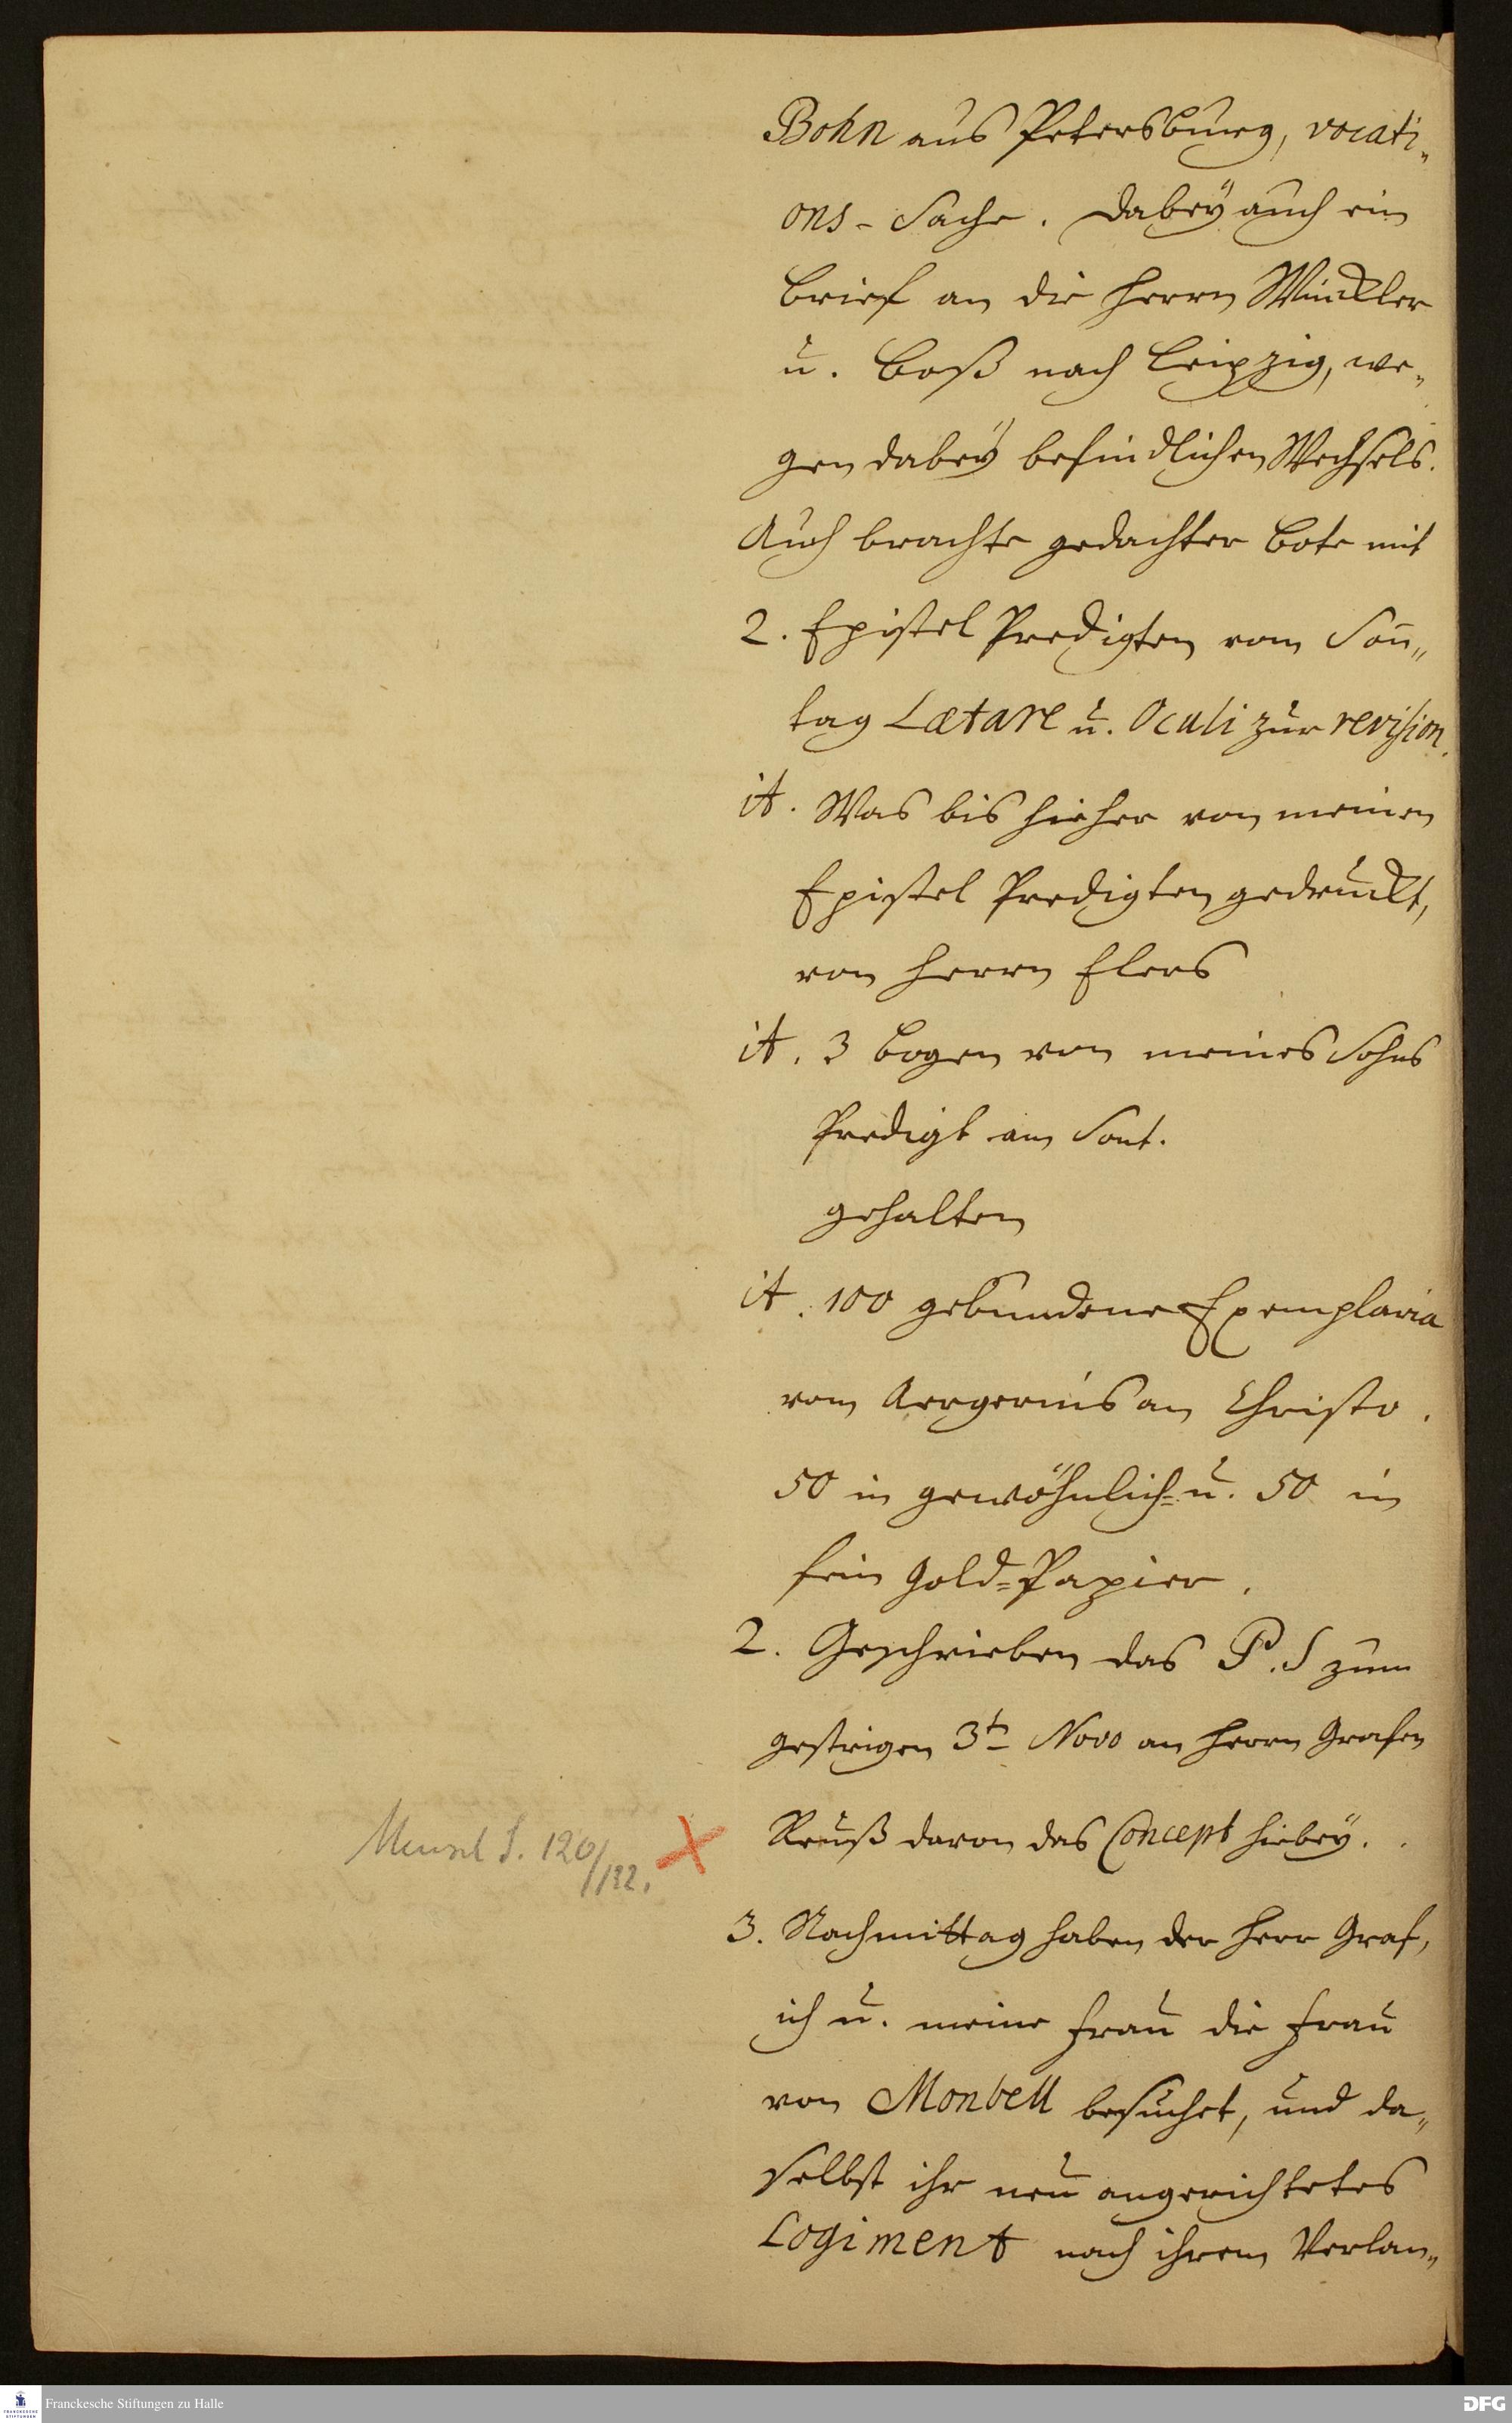 Bohn aus Petersburg, vocati„
ons-Sache. Dabeÿ auch ein
Brief an die Herrn Winckler
u. Boß nach Leipzig, we„
gen dabeÿ befindlichen Wechsels.
Auch brachte gedachter Bote mit
2. Epistel Predigten vom Son̄„
tag Lætare u. Oculi zur revision.
it. Was bis hieher von meinen
Epistel Predigten gedruckt,
von Herrn Elers
it. 3 Bogen von meines Sohns
Predigt am Sont.
gehalten
it. 100 gebundene Exemplaria
vom Aergernis an Christo.
50 in gewöhnlich= u. 50 in
fein Gold=Papier.
2. Geschrieben das P.S zum
gestrigen 3t Novo an Herrn Grafen
Reuß davon das Concept hiebeÿ.
S. 120/132. X
3. Nachmittag haben der Herr Graf,
ich u. meine Frau die Frau
von Monbell besuchet, und da„
selbst ihr neu angerichtetes
Logiment nach ihrem Verlan„
Franckesche Stiftungen zu Halle
DFG